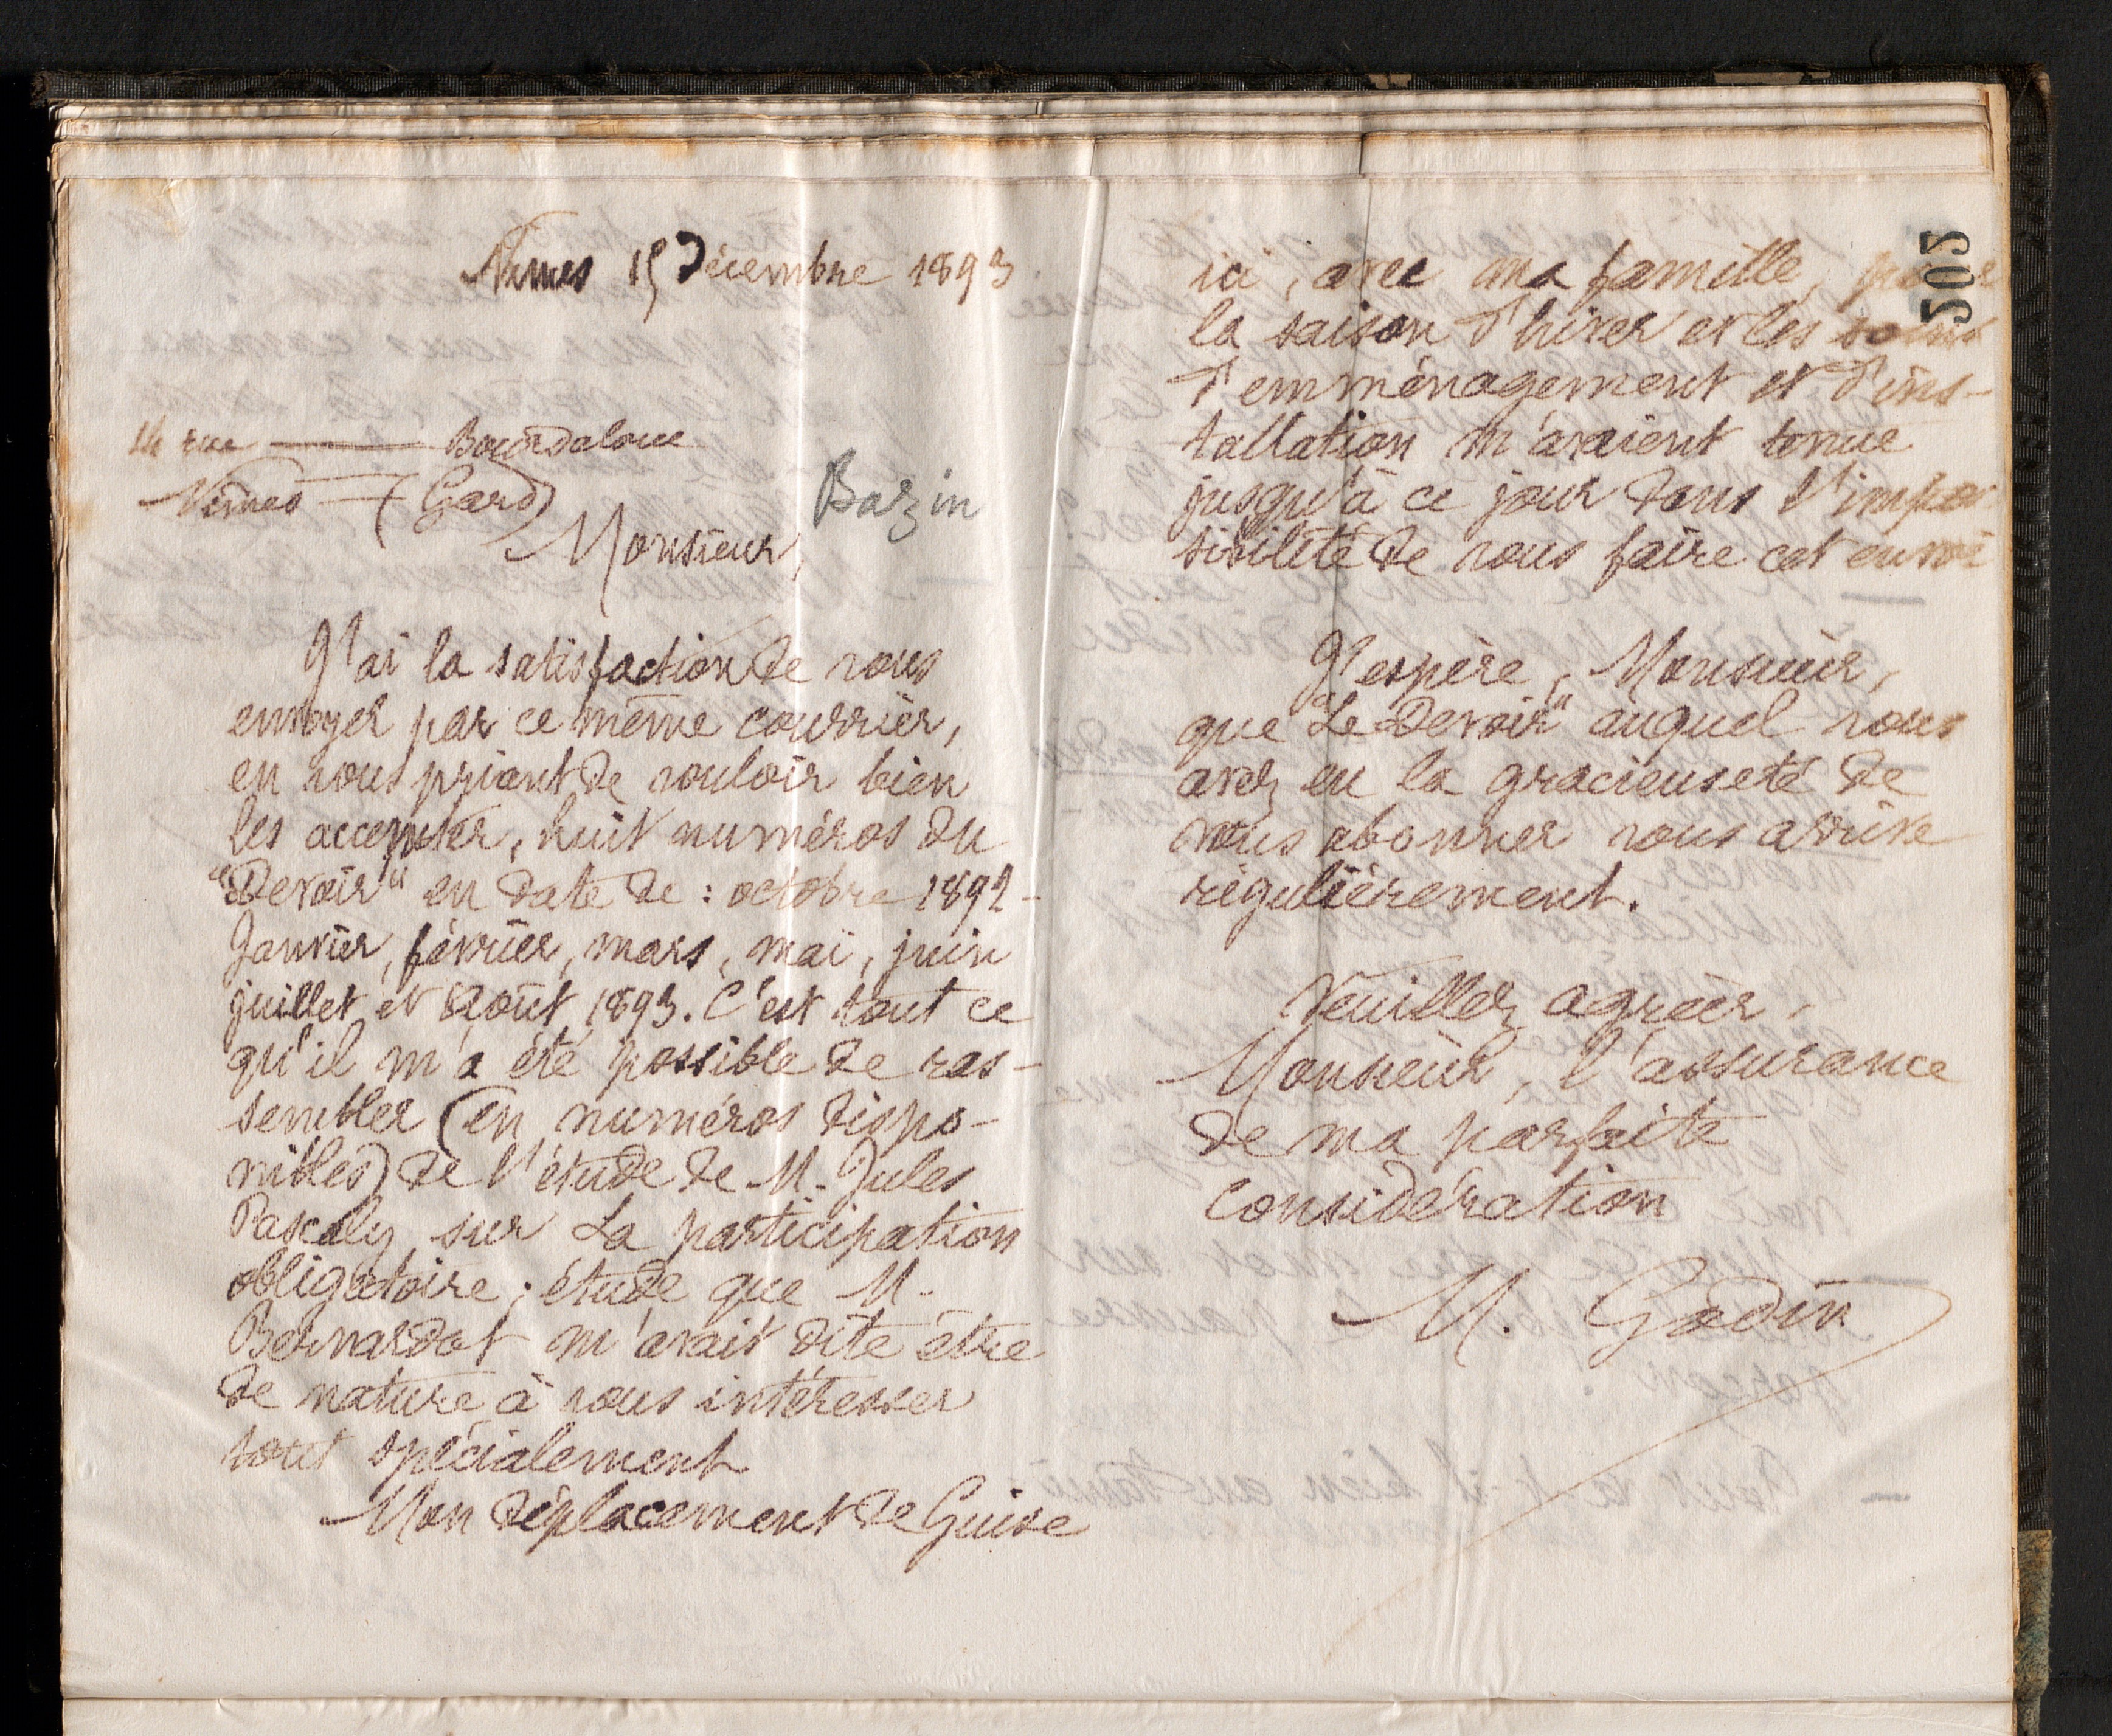 Nîmes 15 Décembre 1893
14 rue — Bourdaloue
Nîmes — (Gard)
Bazin
Monsieur,
J'ai la satisfaction de vous
envoyer par ce même courrier,
en vous priant de vouloir bien
les accepter, huit numéros du
"Devoir" en date de : octobre 1892 -
Janvier, février, mars, mai, juin
juillet et août 1893. C'est tout ce
qu'il m'a été possible de ras-
sembler (en numéros dispo-
nibles) de l'étude de M. Jules
Pascaly sur La participation
obligatoire ; étude que M.
Bernardot m'avait dite être
de nature à vous intéresser
tout spécialement
Mon déplacement de Guise
505
ici, avec ma famille, pour
la saison d'hiver et les soins
d'emménagement et d'ins-
tallation m'avaient tenue
jusqu'à ce jour dans l'impos
sibilité de vous faire cet envoi
J'espère, Monsieur,
que "Le Devoir" auquel vous
avez eu la gracieuseté de
vous abonner vous arrive
régulièrement.
Veuillez agréer,
Monsieur, l'assurance
de ma parfaite
considération
M. Godin